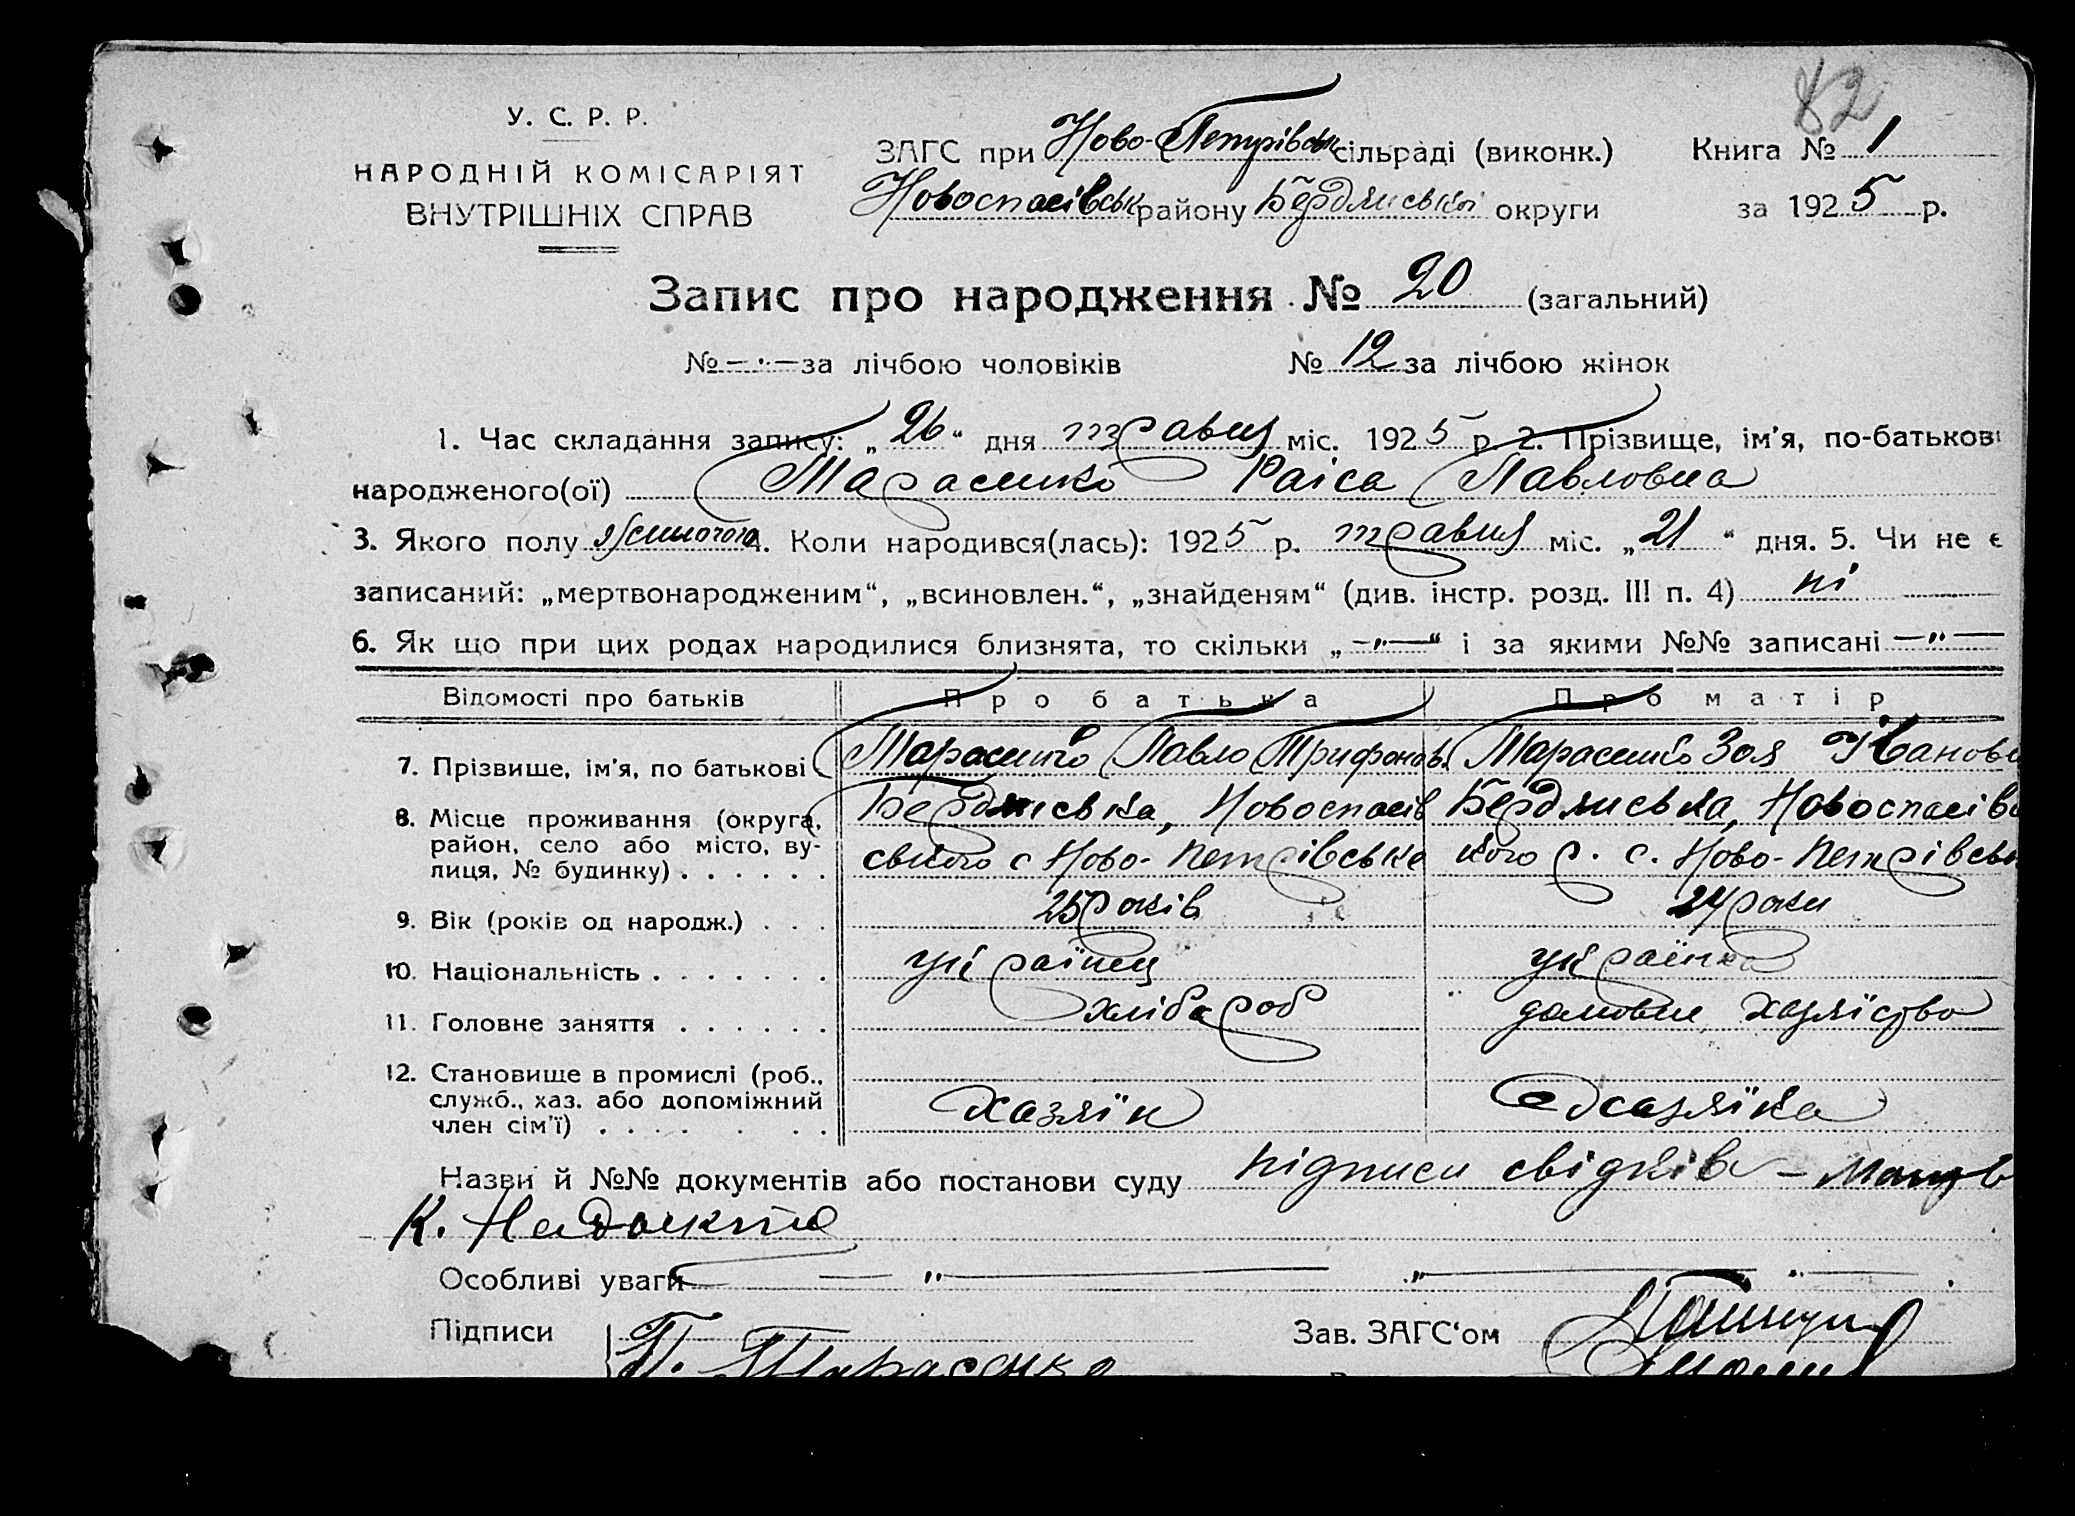 82
У. С. Р. Р.
НАРОДНІЙ КОМІСАРІЯТ
ВНУТРІШНІХ СПРАВ
ЗАГС при Ново-Петрівськ сільраді (виконк.) Книга № 1
Новоспасівськ району Бердянської округи за 1925 р.
Запис про народження № 20 (загальний)
№ — " — за лічбою чоловіків № 12 за лічбою жінок
1. Час складання запису: „26“ дня травня міс. 1925 р. 2. Прізвище, ім'я, по-батькові
народженого(ої) Тарасенко Раіса Павловна
3. Якого полу жіночого 4. Коли народився(лась): 1925 р. травня міс. „21“ дня. 5. Чи не є
записаний: „мертвонародженим“, „всиновлен.“, „знайденям“ (див. інстр. розд. III п. 4) ні
6. Як що при цих родах народилися близнята, то скільки „—"—“ і за якими №№ записані —"—
Відомості про батьків Про батька Про матір
7. Прізвище, ім'я, по батькові Тарасенко Павло Трифонов. Тарасенко Зоя Іванов
8. Місце проживання (округа, район, село або місто, вулиця, № будинку) Бердянська, Новоспасів Бердянська, Новоспасівс
ського с Ново-Петрівська кого р. с. Ново-Петрівськ
9. Вік (років од народж.) 25 років 24 роки
10. Національність українец українка
11. Головне заняття хлібороб домовне хазяїство
12. Становище в промислі (роб., служб., хаз. або допоміжний член сім'ї) хазяїн хазяїка
Назви й №№ документів або постанови суду підписи свідків —
К.
Особливі уваги — " — " — " —
Підписи П. Тарасенко Зав. ЗАГС'ом